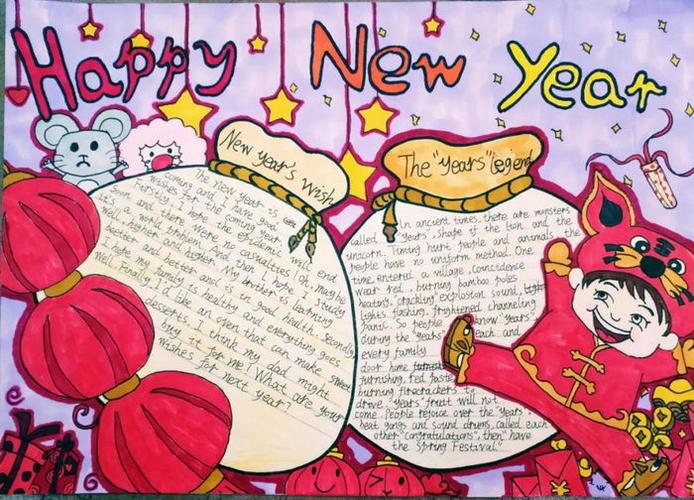 Happy New Year
New Year's Wish
The New Year is
coming and I have good
wishes for the coming year.
Firstly, I hope the epidemic will end
soon and there were no casualties. Oh, maybe
it's a world problem. And then I hope I study
well, higher and higher. My brother is learning
better and better and is in good health. Secondly,
I hope my family is healthy and everything goes
well. Finally, I'd like an oven that can make sweet
desserts. I think my dad might
buy it for me! What are your
wishes for next year?
The "Years" legend
In ancient times, there are monsters
called "Years", shape if the lion and the
unicorn. Timing hurt people and animals, the
people have no uniform method. One
time, entered a village, coincidence
wear red, burning bamboo poles
heating, crackling explosion sound,
lights flashing, frightened channeling
panic. So people know "years".
during the years each and
every family
door home
furnishing, red paste
burning firecrackers to
drive "years" fruit will not
come. People rejoice over the "years".
beat gongs and sound drums, called each
other "congratulations", then "have
the Spring Festival."